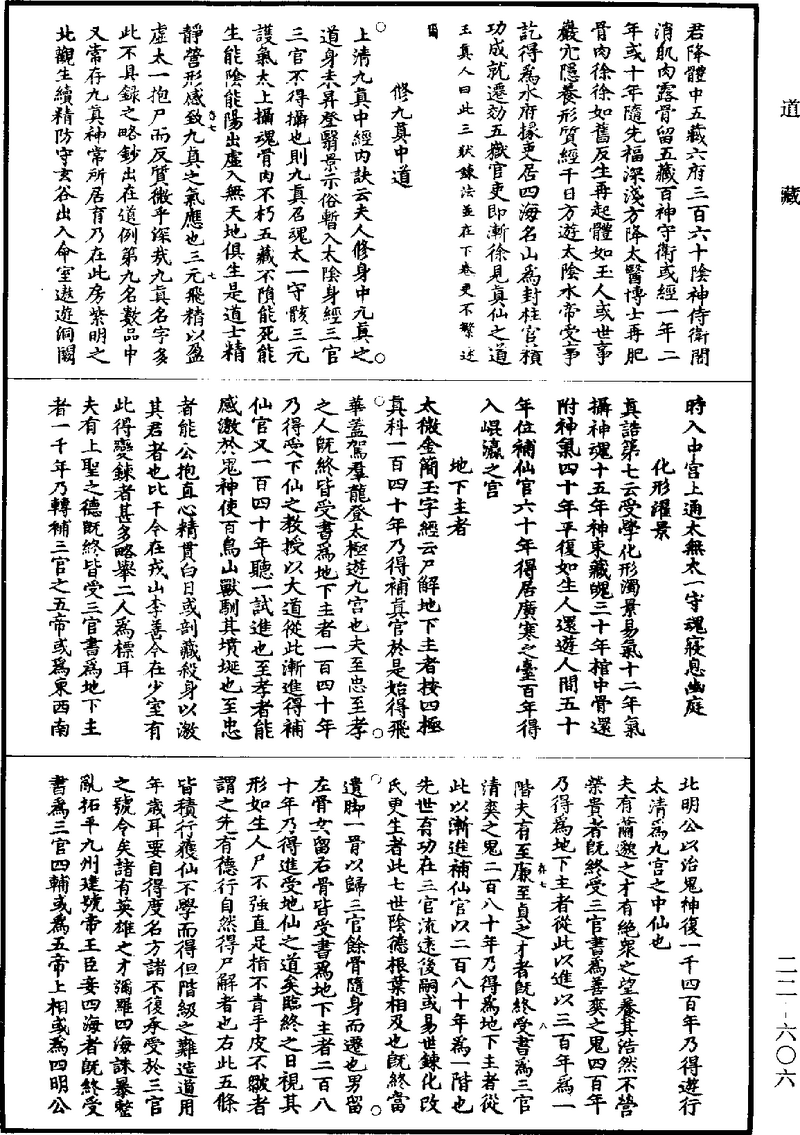 道藏
二二-六〇六
君降體中五藏六府三百六十陰神侍衛閤
消肌肉露骨留五藏百神守衛或經一年二
年或十年隨先福深淺方降太醫博士再肥
骨肉徐徐如舊反生再起體如玉人或世事
巖穴隱養形質經千日方遊太陰水帝受事
訖得為水府掾吏居四海名山為封柱官積
功成就遷劾五嶽官吏即漸徐見真仙之道
王真人曰此三狀鍊法並在下卷更不繁述
爾
修九真中道
上清九真中經內訣云夫人修身中九真之
道身未昇登翳景示俗暫入太陰身經三官
三官不得攝也則九真召魂太一守骸三元
護氣太上攝魂骨肉不朽五藏不隕能死能
生能陰能陽出虛入無天地俱生是道士精
卷七
七
靜營形感致九真之氣應也三元飛精以盈
虛太一抱尸而反質微乎深哉九真名字多
此不具錄之略鈔出在道例第九名數品中
又常存九真神常所居育乃在此房紫明之
北觀生續精防守玄谷出入命室遨遊洞闕
時入中宮上通太無太一守魂寢息幽庭
化形濯景
真誥第七云受學化形濁景易氣十二年氣
攝神魂十五年神束藏魄三十年棺中骨還
附神氣四十年平復如生人還遊人間五十
年位補仙官六十年得居廣寒之臺百年得
入崐瀛之宮
地下主者
太微金簡玉字經云尸解地下主者按四極
真科一百四十年乃得補真官於是始得飛
華蓋駕羣龍登太極遊九宮也夫至忠至孝
之人既終皆受書為地下主者一百四十年
乃得受下仙之教授以大道從此漸進得補
仙官又一百四十年聽一試進也至孝者能
感激於鬼神使百鳥山獸馴其墳埏也至忠
者能公抱直心精貫白日或剖藏殺身以激
其君者也比干今在戎山李善今在少室有
此得變鍊者甚多略舉二人為標耳
夫有上聖之德既終皆受三官書為地下主
者一千年乃轉補三官之五帝或為東西南
北明公以治鬼神復一千四百年乃得遊行
太清為九宮之中仙也
夫有蕭邈之才有絕衆之望養其浩然不營
榮貴者既終受三官書為善爽之鬼四百年
乃得為地下主者從此以進以三百年為一
卷七
八
階夫有至廉至貞之才者既終受書為三官
清爽之鬼二百八十年乃得為地下主者從
此以漸進補仙官以二百八十年為一階也
先世有功在三官流逮後嗣或易世鍊化改
氏更生者此七世陰德根葉相及也既終當
遺脚一骨以歸三官餘骨隨身而遷也男留
左骨女留右骨皆受書為地下主者二百八
十年乃得進受地仙之道矣臨終之日視其
形如生人尸不強直足指不青手皮不皺者
謂之先有德行自然得尸解者也右此五條
皆積行獲仙不學而得但階級之難造道用
年歲耳要自得度名方諸不復承受於三官
之號令矣諸有英雄之才彌羅四海誅暴整
亂拓平九州建號帝王臣妾四海者既終受
書為三官四輔或為五帝上相或為四明公